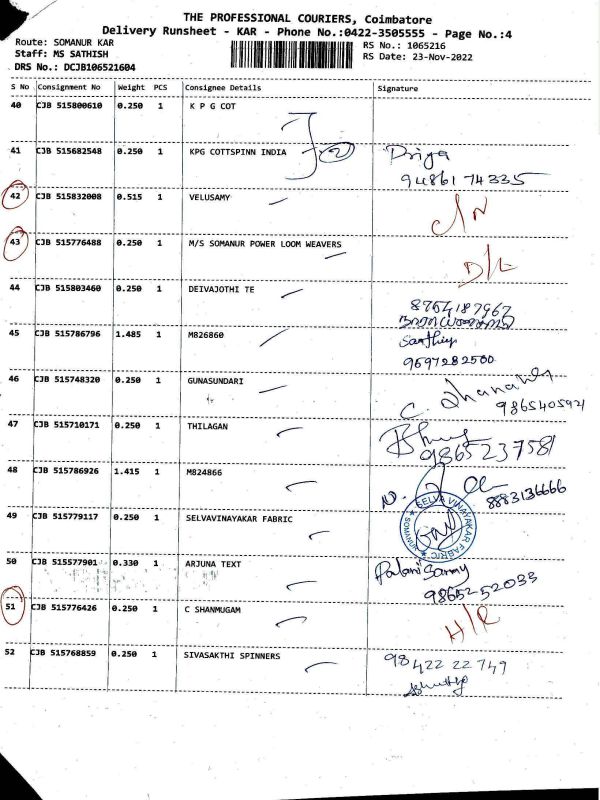 THE PROFESSIONAL COURIERS, Coimbatore
Delivery Runsheet - KAR - Phone No.:0422-3505555 - Page No.:4
Route: SOMANUR KAR
Staff: MS SATHISH
DRS No.: DCJB106521604
RS No.: 1065216
RS Date: 23-Nov-2022
S No Consignment No Weight PCS Consignee Details Signature
40 CJB 515800610 0.250 1 K P G COT
41 CJB 515682548 0.250 1 KPG COTTSPINN INDIA 2 Priya
9486174335
42 CJB 515832008 0.515 1 VELUSAMY C/N
43 CJB 515776488 0.250 1 M/S SOMANUR POWER LOOM WEAVERS D/L
44 CJB 515803460 0.250 1 DEIVAJOTHI TE
8754187967
45 CJB 515786796 1.485 1 M826860
9697282500
46 CJB 515748320 0.250 1 GUNASUNDARI C.
9865405921
47 CJB 515710171 0.250 1 THILAGAN
9865237581
48 CJB 515786926 1.415 1 M824866
8883136666
49 CJB 515779117 0.250 1 SELVAVINAYAKAR FABRIC
SELVA VINAYAKAR FABRIC
SOMANUR
50 CJB 515577901 0.330 1 ARJUNA TEXT Palanisamy
9865252033
51 CJB 515776426 0.250 1 C SHANMUGAM H/R
52 CJB 515768859 0.250 1 SIVASAKTHI SPINNERS 98422 22749